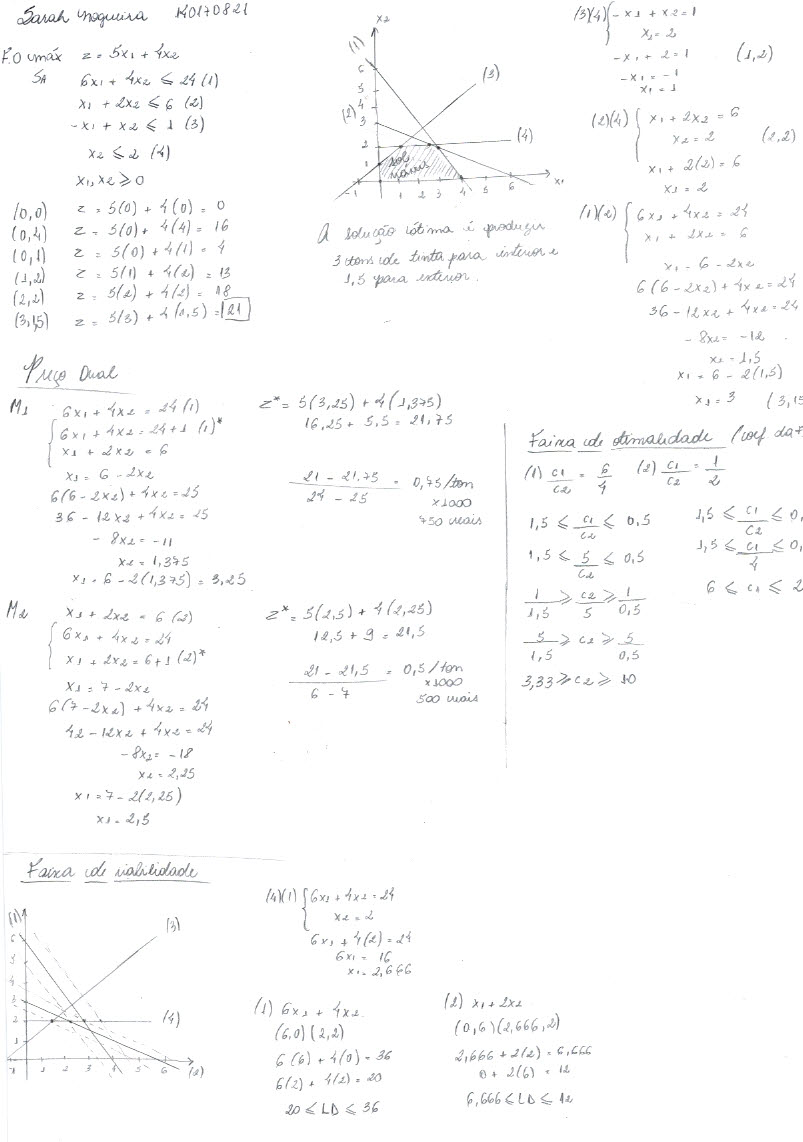 Sarah Nogueira K0170821
F.O máx z = 5x1 + 4x2
SA
6x1 + 4x2 ≤ 24 (1)
x1 + 2x2 ≤ 6 (2)
-x1 + x2 ≤ 1 (3)
x2 ≤ 2 (4)
x1, x2 ≥ 0
(0,0) z = 5(0) + 4(0) = 0
(0,4) z = 5(0) + 4(4) = 16
(0,1) z = 5(0) + 4(1) = 4
(1,2) z = 5(1) + 4(2) = 13
(2,2) z = 5(2) + 4(2) = 18
(3,1,5) z = 5(3) + 4(1,5) = 21
x2
(1)
6
5
4
3
(2)
2
1
(3)
(4)
sol
viáveis
-1 1 2 3 4 5 6 x1
A solução ótima é produzir
3 tons de tinta para interior e
1,5 para exterior.
(3)(4) -x1 + x2 = 1
x2 = 2
-x1 + 2 = 1 (1,2)
-x1 = -1
x1 = 1
(2)(4) x1 + 2x2 = 6
x2 = 2 (2,2)
x1 + 2(2) = 6
x1 = 2
(1)(2) 6x1 + 4x2 = 24
x1 + 2x2 = 6
x1 = 6 - 2x2
6(6 - 2x2) + 4x2 = 24
36 - 12x2 + 4x2 = 24
-8x2 = -12
x2 = 1,5
x1 = 6 - 2(1,5)
x1 = 3 (3,15
Preço Dual
M1 6x1 + 4x2 = 24 (1)
6x1 + 4x2 = 24+1 (1)*
x1 + 2x2 = 6
x1 = 6 - 2x2
6(6 - 2x2) + 4x2 = 25
36 - 12x2 + 4x2 = 25
-8x2 = -11
x2 = 1,375
x1 = 6 - 2(1,375) = 3,25
z* = 5(3,25) + 4(1,375)
16,25 + 5,5 = 21,75
21 - 21,75 = 0,75/ton
24 - 25 x1000
750 reais
M2 x1 + 2x2 = 6 (2)
6x1 + 4x2 = 24
x1 + 2x2 = 6+1 (2)*
x1 = 7 - 2x2
6(7 - 2x2) + 4x2 = 24
42 - 12x2 + 4x2 = 24
-8x2 = -18
x2 = 2,25
x1 = 7 - 2(2,25)
x1 = 2,5
z* = 5(2,5) + 4(2,25)
12,5 + 9 = 21,5
21 - 21,5 = 0,5/ton
6 - 7 x1000
500 reais
Faixa de otimalidade (coef da F
(1) c1/c2 = 6/4 (2) c1/c2 = 1/2
1,5 ≤ c1/c2 ≤ 0,5
1,5 ≤ 5/c2 ≤ 0,5
1/1,5 ≥ c2/5 ≥ 1/0,5
5/1,5 ≥ c2 ≥ 5/0,5
3,33 ≥ c2 ≥ 10
1,5 ≤ c1/c2 ≤ 0,
1,5 ≤ c1/4 ≤ 0,
6 ≤ c1 ≤ 2
Faixa de viabilidade
(1)
6
5
4
3
2
1
(3)
(4)
1 2 3 4 5 6 (2)
(4)(1) 6x1 + 4x2 = 24
x2 = 2
6x1 + 4(2) = 24
6x1 = 16
x1 = 2,666
(1) 6x1 + 4x2
(6,0) (2,2)
6(6) + 4(0) = 36
6(2) + 4(2) = 20
20 ≤ LD ≤ 36
(2) x1 + 2x2
(0,6) (2,666, 2)
2,666 + 2(2) = 6,666
0 + 2(6) = 12
6,666 ≤ LD ≤ 12